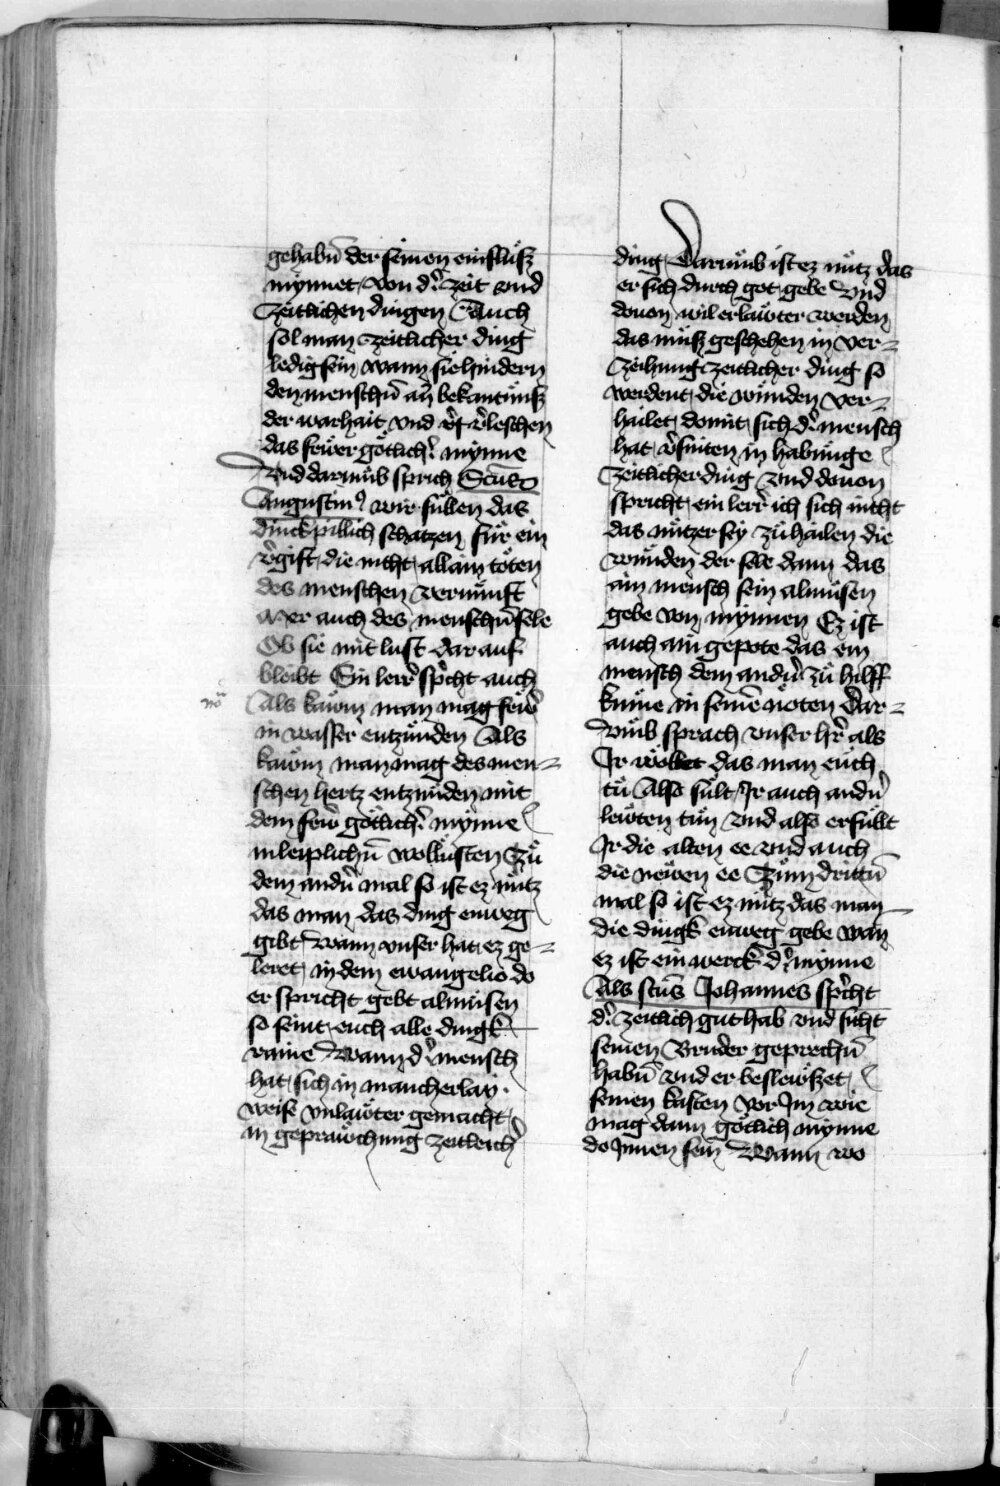 gehabn̄ der seinen einfluͦsz
mynnet von d' zeit vnd
Zeitlichen dingen Auch
sol man zeitlicher ding
ledig sein wann sie hindern
den menschn̄ an bekantnuͤsz
der warhait vnd erleschen
das fewer goͤtlich' mynne
Vnd darumb sprich Scūs
Augustin⁹ wir suͤllen das
dinck pillich schatzen fuͤr ein
v'gift die nicht allain toͤten
des menschen vernuͦnft
aver auch des menschn̄ sele
Ob sie mit lust dar auf
bleibt Ein lerr' sp'icht auch
Als kawm man mag fewr'
in wasser entzuͤnden Als
kawm man mag des men-
schen hertz entzuͤnden mit
dem fewr goͤtlich' mynne
in leiplichn̄ wolluͤsten Zuͦ
dem andn' mal so ist ez nuͤtz
das man das ding enweg
gibt Wann vnser hat ez ge-
leret in dem ewangelio do
er spricht gebt almuͦsen
so seint euch alle dingk
raine Wann d' mensch
hat sich in mancherlay
weise vnlawter gemacht
in geprawchung zeitleich'
ding Darumb ist ez nuͤtz das
er sich durch got gebe Vnd
douon wil erlawter werden
das muͦsz geschehen in ver-
Zeihung zeitlicher ding so
werdent die wunden ver-
hailet domit sich d' mensch
hat v'suniten in habunge
Zeitlicher ding Vnd douon
spricht ein lerr' ich sich nicht
das nuͤtzer sey zuͦ hailen die
wunden der sele dann das
ain mensch sein almuͦsen
gebe von mynnen Ez ist
auch ain gepote das ein
mensch dem andn' zuͦ hilff
kume in seinē noͤten Dar-
vmb sprach vnser hr' als
Ir woͤllet das man euch
tuͦ Also suͤlt Ir auch andn'
lewten tuͦn Vnd also erfuͤllt
Ir die alten ee vnd auch
die newen ee Zum drittn̄
mal so ist ez nuͤtz das man
die dingk enweg gebe wan
ez ist ein werck d' mynne
Als scūs Johannes sp'icht
d' zeitlich gut hab vnd sicht
seinen Bruder geprechn̄
habn̄ vnd er beslewszet
seinen kasten vor Im wie
mag dann goͤtlich mynne
do Innen sein Wann wo